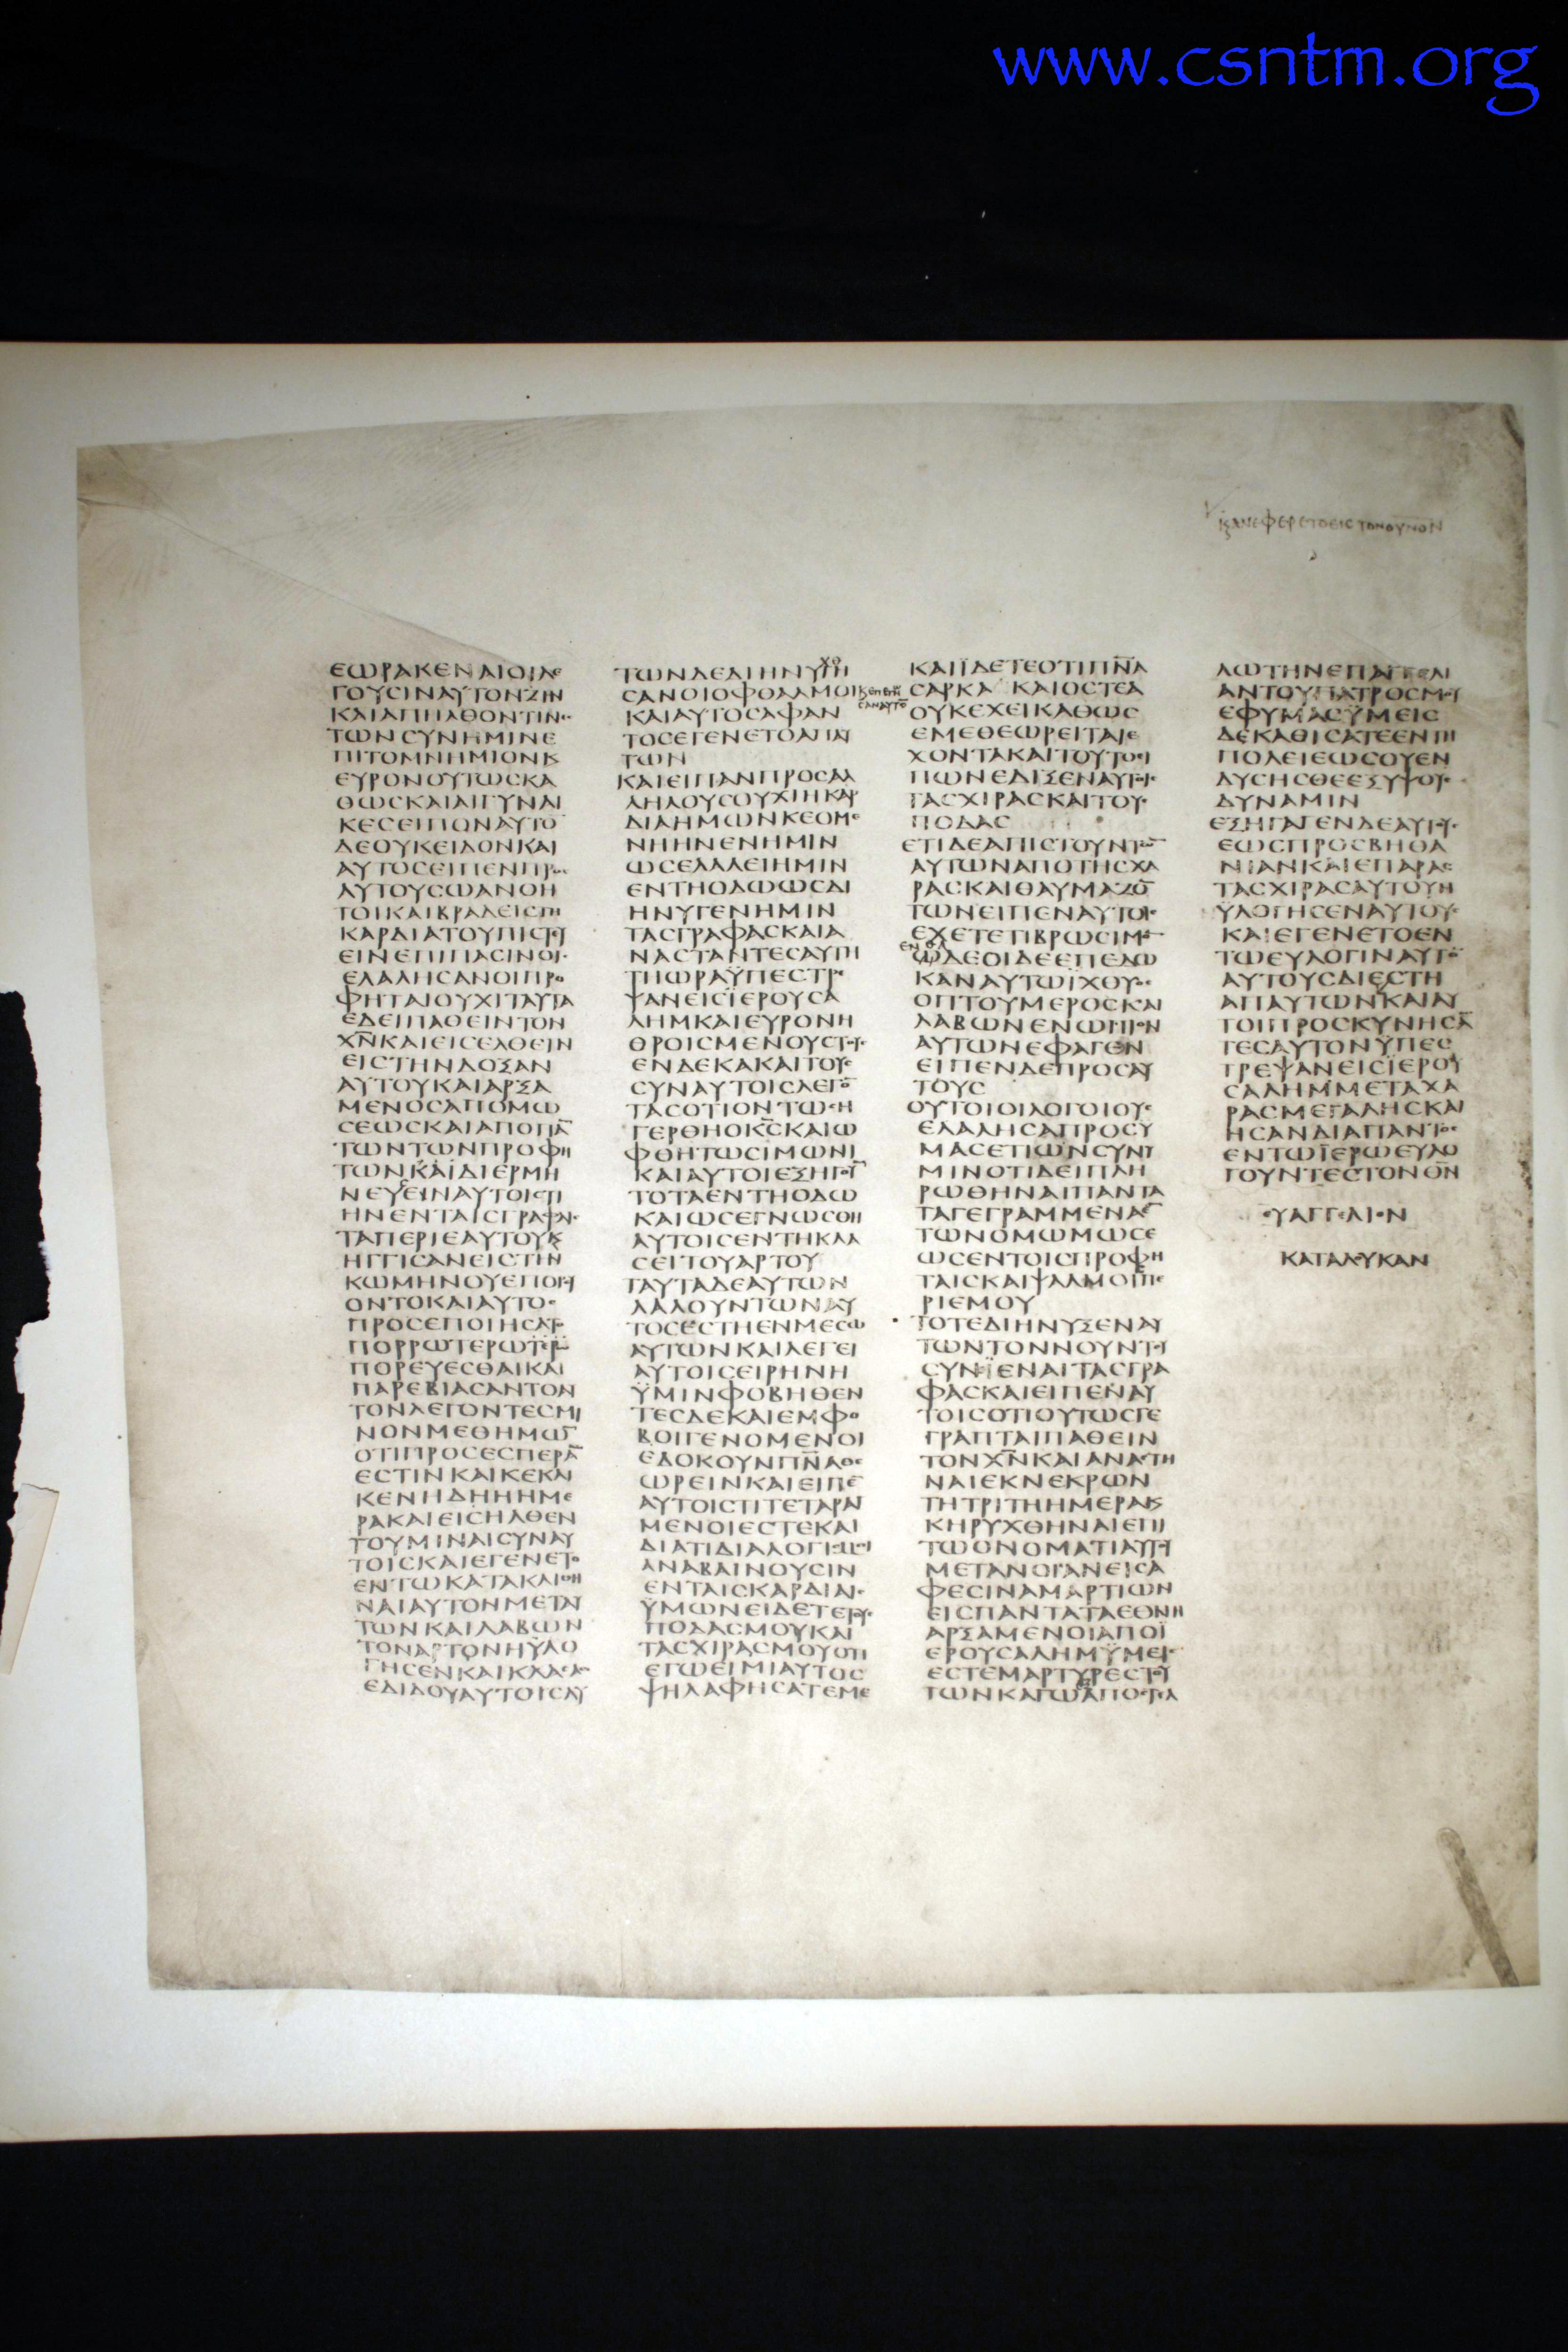 www.csntm.org
ϗανεφερετοεισ τονουνο̅ν
ΕΩΡΑΚΕΝΑΙΟΙΛΕ
ΓΟΥϹΙΝΑΥΤΟΝΖΗΝ
ΚΑΙΑΠΗΛΘΟΝΤΙΝΕϹ
ΤΩΝϹΥΝΗΜΙΝΕ
ΠΙΤΟΜΝΗΜΙΟΝϏ
ΕΥΡΟΝΟΥΤΩϹΚΑ
ΘΩϹΚΑΙΑΙΓΥΝΑΙ
ΚΕϹΕΙΠΟΝΑΥΤΟ̅
ΔΕΟΥΚΕΙΔΟΝΚΑΙ
ΑΥΤΟϹΕΙΠΕΝΠΡΟϹ
ΑΥΤΟΥϹΩΑΝΟΗ
ΤΟΙΚΑΙΒΡΑΔΕΙϹΤΗ
ΚΑΡΔΙΑΤΟΥΠΙϹΤΕΥ
ΕΙΝΕΠΙΠΑϹΙΝΟΙϹ
ΕΛΑΛΗϹΑΝΟΙΠΡΟ
ΦΗΤΑΙΟΥΧΙΤΑΥΤΑ
ΕΔΕΙΠΑΘΕΙΝΤΟΝ
Χ̅Ν̅ΚΑΙΕΙϹΕΛΘΕΙΝ
ΕΙϹΤΗΝΔΟΞΑΝ
ΑΥΤΟΥΚΑΙΑΡΞΑ
ΜΕΝΟϹΑΠΟΜΩ
ϹΕΩϹΚΑΙΑΠΟΠΑ̅
ΤΩΝΤΩΝΠΡΟΦΗ
ΤΩΝΚΑΙΔΙΕΡΜΗ
ΝΕΥΕΙΝΑΥΤΟΙϹΤΙ
ΗΝΕΝΤΑΙϹΓΡΑΦΑΙϹ
ΤΑΠΕΡΙΕΑΥΤΟΥϏ
ΗΓΓΙϹΑΝΕΙϹΤΗΝ
ΚΩΜΗΝΟΥΕΠΟΡΕΥ
ΟΝΤΟΚΑΙΑΥΤΟϹ
ΠΡΟϹΕΠΟΙΗϹΑΤΟ
ΠΟΡΡΩΤΕΡΩ
ΠΟΡΕΥΕϹΘΑΙΚΑΙ
ΠΑΡΕΒΙΑϹΑΝΤΟΝ
ΤΟΝΛΕΓΟΝΤΕϹΜΙ
ΝΟΝΜΕΘΗΜΩ̅
ΟΤΙΠΡΟϹΕϹΠΕΡΑ̅
ΕϹΤΙΝΚΑΙΚΕΚΛΙ
ΚΕΝΗΔΗΗΗΜΕ
ΡΑΚΑΙΕΙϹΗΛΘΕΝ
ΤΟΥΜΙΝΑΙϹΥΝΑΥ
ΤΟΙϹΚΑΙΕΓΕΝΕΤΟ
ΕΝΤΩΚΑΤΑΚΛΙΘΗ
ΝΑΙΑΥΤΟΝΜΕΤΑΥ
ΤΩΝΚΑΙΛΑΒΩΝ
ΤΟΝΑΡΤΟΝΗΫΛΟ
ΓΗϹΕΝΚΑΙΚΛΑϹΑϹ
ΕΔΙΔΟΥΑΥΤΟΙϹΑΥ
ΤΩΝΔΕΔΙΗΝΥΓΗ
ϹΑΝΟΙΟΦΘΑΛΜΟΙ
ΚΑΙΑΥΤΟϹΑΦΑΝ
ΤΟϹΕΓΕΝΕΤΟΑΠΑΥ
ΤΩΝ
ΚΑΙΕΙΠΑΝΠΡΟϹΑΛ
ΛΗΛΟΥϹΟΥΧΙΗΚΑΡ
ΔΙΑΗΜΩΝΚΕΟΜΕ
ΝΗΗΝΕΝΗΜΙΝ
ΩϹΕΛΑΛΕΙΗΜΙΝ
ΕΝΤΗΟΔΩΩϹΔΙ
ΗΝΥΓΕΝΗΜΙΝ
ΤΑϹΓΡΑΦΑϹΚΑΙΑ
ΝΑϹΤΑΝΤΕϹΑΥΤΗ
ΤΗΩΡΑΫΠΕϹΤΡΕ
ΨΑΝΕΙϹΪΕΡΟΥϹΑ
ΛΗΜΚΑΙΕΥΡΟΝΗ
ΘΡΟΙϹΜΕΝΟΥϹΤΟΥϹ
ΕΝΔΕΚΑΚΑΙΤΟΥϹ
ϹΥΝΑΥΤΟΙϹΛΕΓΟ̅
ΤΑϹΟΤΙΟΝΤΩϹΗ
ΓΕΡΘΗΟΚ̅Ϲ̅ΚΑΙΩ
ΦΘΗΤΩϹΙΜΩΝΙ
ΚΑΙΑΥΤΟΙΕΞΗΓΟΥ̅
ΤΟΤΑΕΝΤΗΟΔΩ
ΚΑΙΩϹΕΓΝΩϹΘΗ
ΑΥΤΟΙϹΕΝΤΗΚΛΑ
ϹΕΙΤΟΥΑΡΤΟΥ
ΤΑΥΤΑΔΕΑΥΤΩΝ
ΛΑΛΟΥΝΤΩΝΑΥ
ΤΟϹΕϹΤΗΕΝΜΕϹΩ
ΑΥΤΩΝΚΑΙΛΕΓΕΙ
ΑΥΤΟΙϹΕΙΡΗΝΗ
ΫΜΙΝΦΟΒΗΘΕΝ
ΤΕϹΔΕΚΑΙΕΜΦΟ
ΒΟΙΓΕΝΟΜΕΝΟΙ
ΕΔΟΚΟΥΝΠ̅Ν̅Α̅ΘΕ
ΩΡΕΙΝΚΑΙΕΙΠΕ̅
ΑΥΤΟΙϹΤΙΤΕΤΑΡΑΓ
ΜΕΝΟΙΕϹΤΕΚΑΙ
ΔΙΑΤΙΔΙΑΛΟΓΙϹΜΟΙ
ΑΝΑΒΑΙΝΟΥϹΙΝ
ΕΝΤΑΙϹΚΑΡΔΙΑΙϹ
ΫΜΩΝΕΙΔΕΤΕΤΟΥϹ
ΠΟΔΑϹΜΟΥΚΑΙ
ΤΑϹΧΙΡΑϹΜΟΥΟΤΙ
ΕΓΩΕΙΜΙΑΥΤΟϹ
ΨΗΛΑΦΗϹΑΤΕΜΕ
ΚΑΙΪΔΕΤΕΟΤΙΠ̅Ν̅Α̅
ϹΑΡΚΑ ΚΑΙΟϹΤΕΑ
ΟΥΚΕΧΕΙΚΑΘΩϹ
ΕΜΕΘΕΩΡΕΙΤΑΙΕ
ΧΟΝΤΑΚΑΙΤΟΥΤΟΕΙ
ΠΩΝΕΔΙΞΕΝΑΥΤΟΙϹ
ΤΑϹΧΙΡΑϹΚΑΙΤΟΥϹ
ΠΟΔΑϹ
ΕΤΙΔΕΑΠΙϹΤΟΥΝΤΩ̅
ΑΥΤΩΝΑΠΟΤΗϹΧΑ
ΡΑϹΚΑΙΘΑΥΜΑΖΟ̅
ΤΩΝΕΙΠΕΝΑΥΤΟΙϹ
ΕΧΕΤΕΤΙΒΡΩϹΙΜΟ̅
ΩΔΕΟΙΔΕΕΠΕΔΩ
ΚΑΝΑΥΤΩΪΧΘΥΟϹ
ΟΠΤΟΥΜΕΡΟϹΚΑΙ
ΛΑΒΩΝΕΝΩΠΙΟΝ
ΑΥΤΩΝΕΦΑΓΕΝ
ΕΙΠΕΝΔΕΠΡΟϹΑΥ
ΤΟΥϹ
ΟΥΤΟΙΟΙΛΟΓΟΙΟΥϹ
ΕΛΑΛΗϹΑΠΡΟϹΥ
ΜΑϹΕΤΙΩΝϹΥΝΥ
ΜΙΝΟΤΙΔΕΙΠΛΗ
ΡΩΘΗΝΑΙΠΑΝΤΑ
ΤΑΓΕΓΡΑΜΜΕΝΑΕ̅
ΤΩΝΟΜΩΜΩϹΕ
ΩϹΕΝΤΟΙϹΠΡΟΦΗ
ΤΑΙϹΚΑΙΨΑΛΜΟΙϹΠΕ
ΡΙΕΜΟΥ
ΤΟΤΕΔΙΗΝΥΞΕΝΑΥ
ΤΩΝΤΟΝΝΟΥΝΤΟΥ
ϹΥΝΪΕΝΑΙΤΑϹΓΡΑ
ΦΑϹΚΑΙΕΙΠΕΝΑΥ
ΤΟΙϹΟΤΙΟΥΤΩϹΓΕ
ΓΡΑΠΤΑΙΠΑΘΕΙΝ
ΤΟΝΧ̅Ν̅ΚΑΙΑΝΑϹΤΗ
ΝΑΙΕΚΝΕΚΡΩΝ
ΤΗΤΡΙΤΗΗΜΕΡΑϏ
ΚΗΡΥΧΘΗΝΑΙΕΠΙ
ΤΩΟΝΟΜΑΤΙΑΥΤΟΥ
ΜΕΤΑΝΟΙΑΝΕΙϹΑ
ΦΕϹΙΝΑΜΑΡΤΙΩΝ
ΕΙϹΠΑΝΤΑΤΑΕΘΝΗ
ΑΡΞΑΜΕΝΟΙΑΠΟΪ
ΕΡΟΥϹΑΛΗΜΫΜΕΙϹ
ΕϹΤΕΜΑΡΤΥΡΕϹΤΟΥ
ΤΩΝΚΑΓΩΑΠΟϹΤΕΛ
ΛΩΤΗΝΕΠΑΓΓΕΛΙ
ΑΝΤΟΥΠΑΤΡΟϹΜΟΥ
ΕΦΥΜΑϹΫΜΕΙϹ
ΔΕΚΑΘΙϹΑΤΕΕΝΤΗ
ΠΟΛΕΙΕΩϹΟΥΕΝ
ΔΥϹΗϹΘΕΕΞΥΨΟΥϹ
ΔΥΝΑΜΙΝ
ΕΞΗΓΑΓΕΝΔΕΑΥΤΟΥϹ
ΕΩϹΠΡΟϹΒΗΘΑ
ΝΙΑΝΚΑΙΕΠΑΡΑϹ
ΤΑϹΧΙΡΑϹΑΥΤΟΥΗ
ΫΛΟΓΗϹΕΝΑΥΤΟΥϹ
ΚΑΙΕΓΕΝΕΤΟΕΝ
ΤΩΕΥΛΟΓΙΝΑΥΤΟ̅
ΑΥΤΟΥϹΔΙΕϹΤΗ
ΑΠΑΥΤΩΝΚΑΙΑΥ
ΤΟΙΠΡΟϹΚΥΝΗϹΑ̅
ΤΕϹΑΥΤΟΝΫΠΕϹ
ΤΡΕΨΑΝΕΙϹΪΕΡΟΥ
ϹΑΛΗΜΜΕΤΑΧΑ
ΡΑϹΜΕΓΑΛΗϹΚΑΙ
ΗϹΑΝΔΙΑΠΑΝΤΟϹ
ΕΝΤΩΪΕΡΩΕΥΛΟ
ΓΟΥΝΤΕϹΤΟΝΘ̅Ν̅
ΕΥΑΓΓΕΛΙΟΝ
ΚΑΤΑΛΟΥΚΑΝ